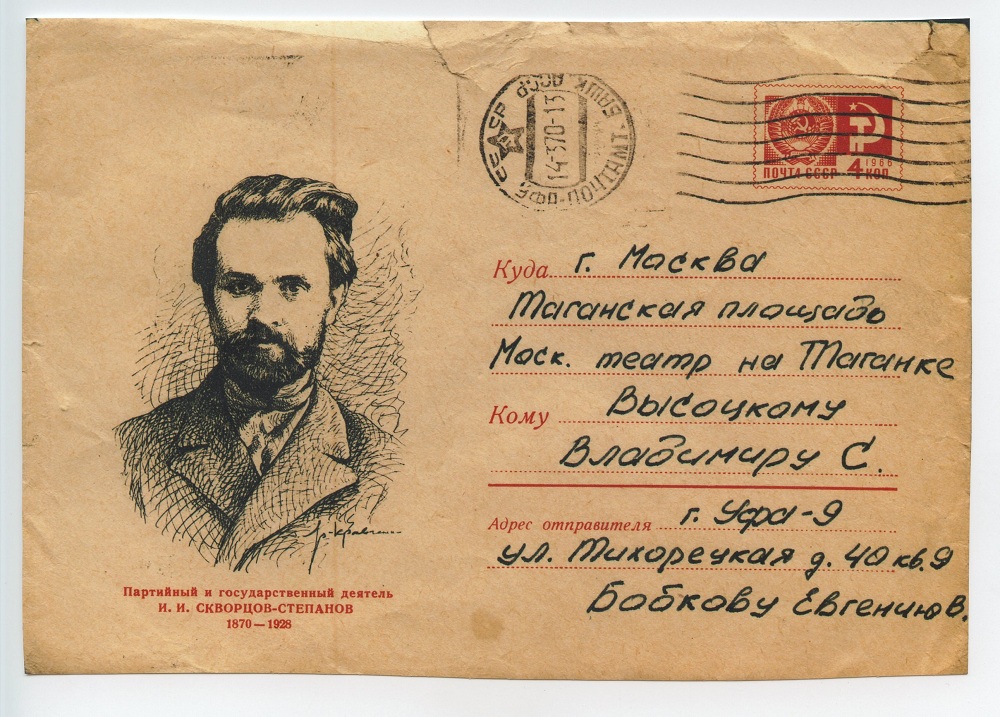 СССР
14-370-13
БАШК. АССР
ПОЧТА СССР
4 КОП
1966
Куда г. Москва
Таганская площадь
Моск. театр на Таганке
Кому Высоцкому
Владимиру С.
Адрес отправителя г. Уфа-9
ул. Тихорецкая д. 40 кв. 9
Бобкову Евгению В.
Партийный и государственный деятель
И. И. СКВОРЦОВ-СТЕПАНОВ
1870—1928